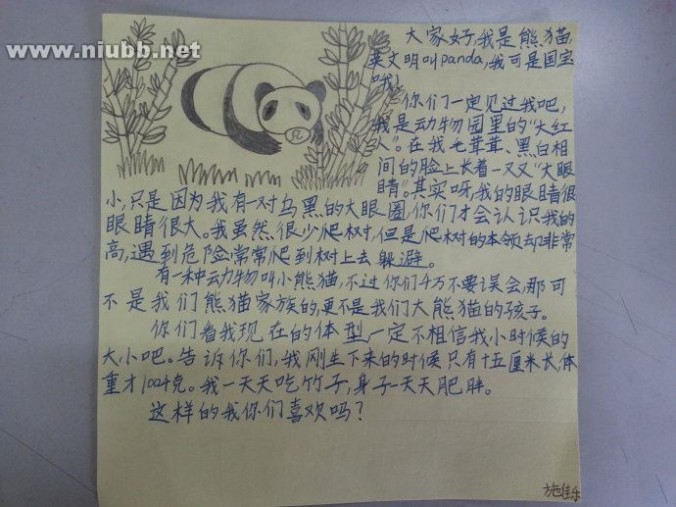 www.niubb.net
大家好,我是熊猫,
英文明叫panda,我可是国宝
哦!
你们一定见过我吧,
我是动物园里的“大红
人”。在我毛茸茸、黑白相
间的脸上长着一双又“大眼
睛”。其实呀,我的眼睛很
小,只是因为我有一对乌黑的大眼圈,你们才会认识我的
眼睛很大。我虽然很少爬树,但是爬树的本领却非常
高,遇到危险常常爬到树上去躲避。
有一种动物叫小熊猫,不过你们千万不要误会,那可
不是我们熊猫家族的,更不是我们大熊猫的孩子。
你们看我现在的体型,一定不相信我小时候的
大小吧。告诉你们,我刚生下来的时候只有十五厘米长,体
重才100克。我一天天吃竹子,身子一天天肥胖。
这样的我你们喜欢吗?
施佳乐